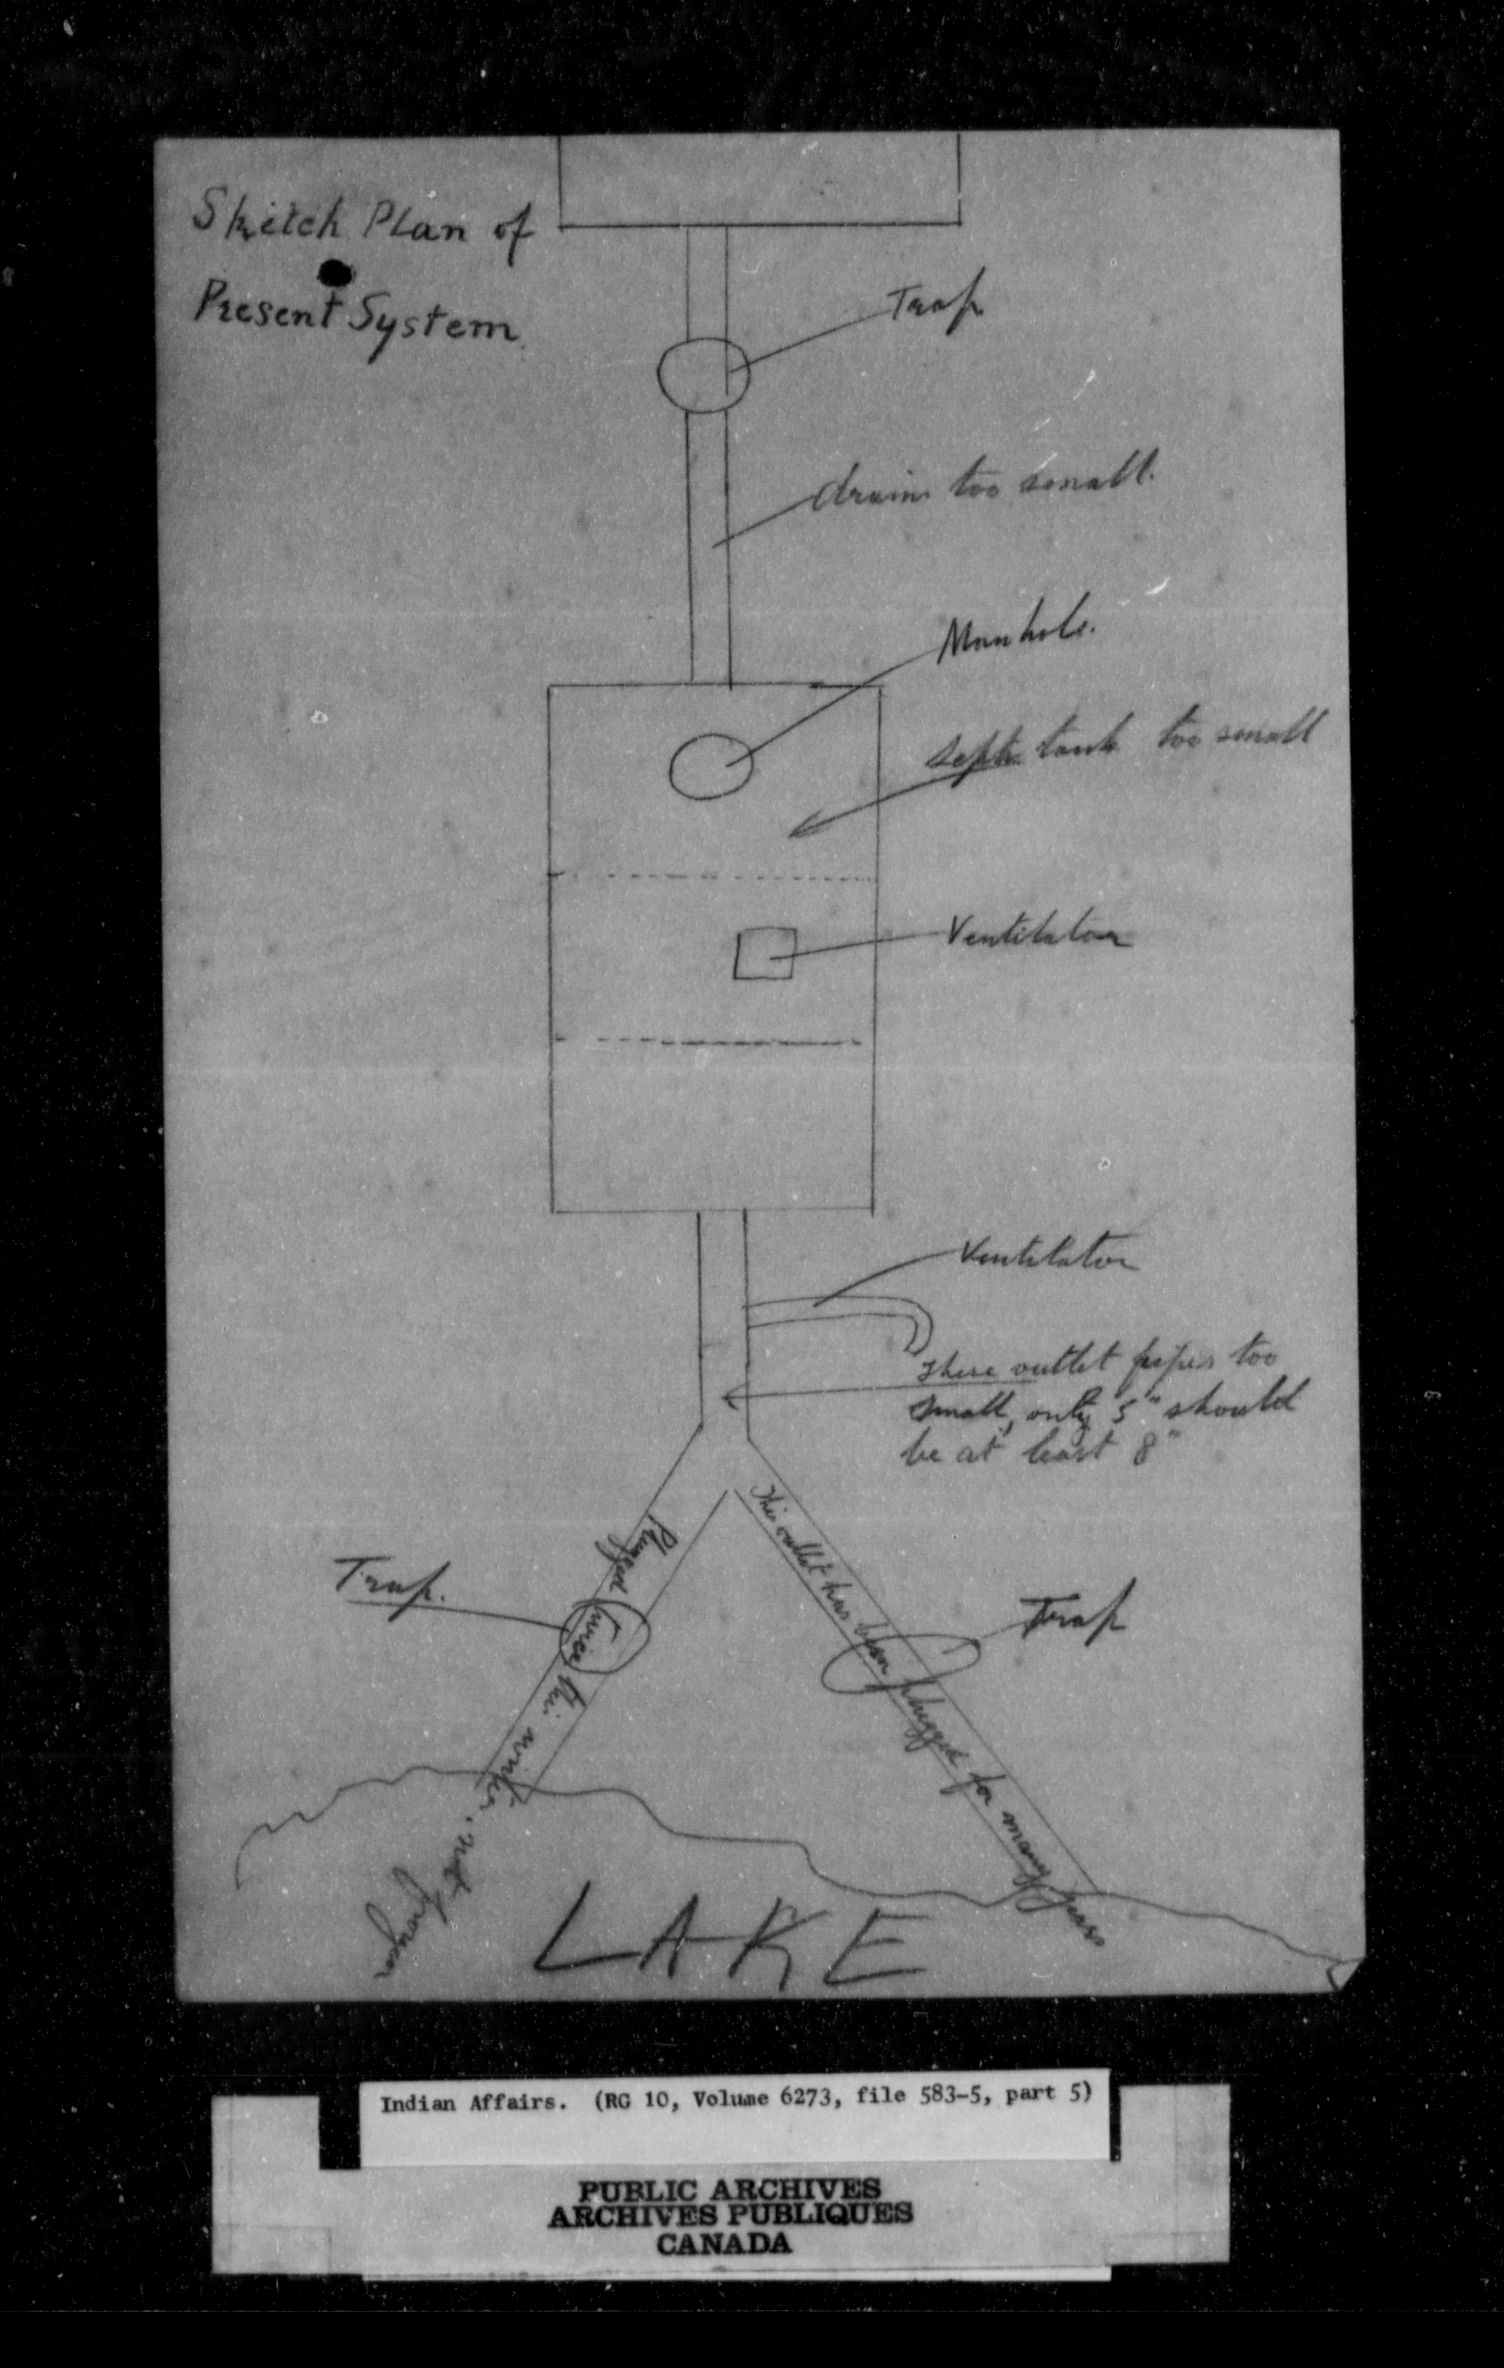 Sketch Plan of
Present System
Trap
drain too small.
Manhole.
Septic tank too small
Ventilator
Ventilator
These outlet pipes too
small, only 5" should
be at least 8"
Plugged twice this winter. not frozen
This outlet has been plugged for many years
Trap.
Trap
LAKE
Indian Affairs. (RG 10, Volume 6273, file 583-5, part 5)
PUBLIC ARCHIVES
ARCHIVES PUBLIQUES
CANADA